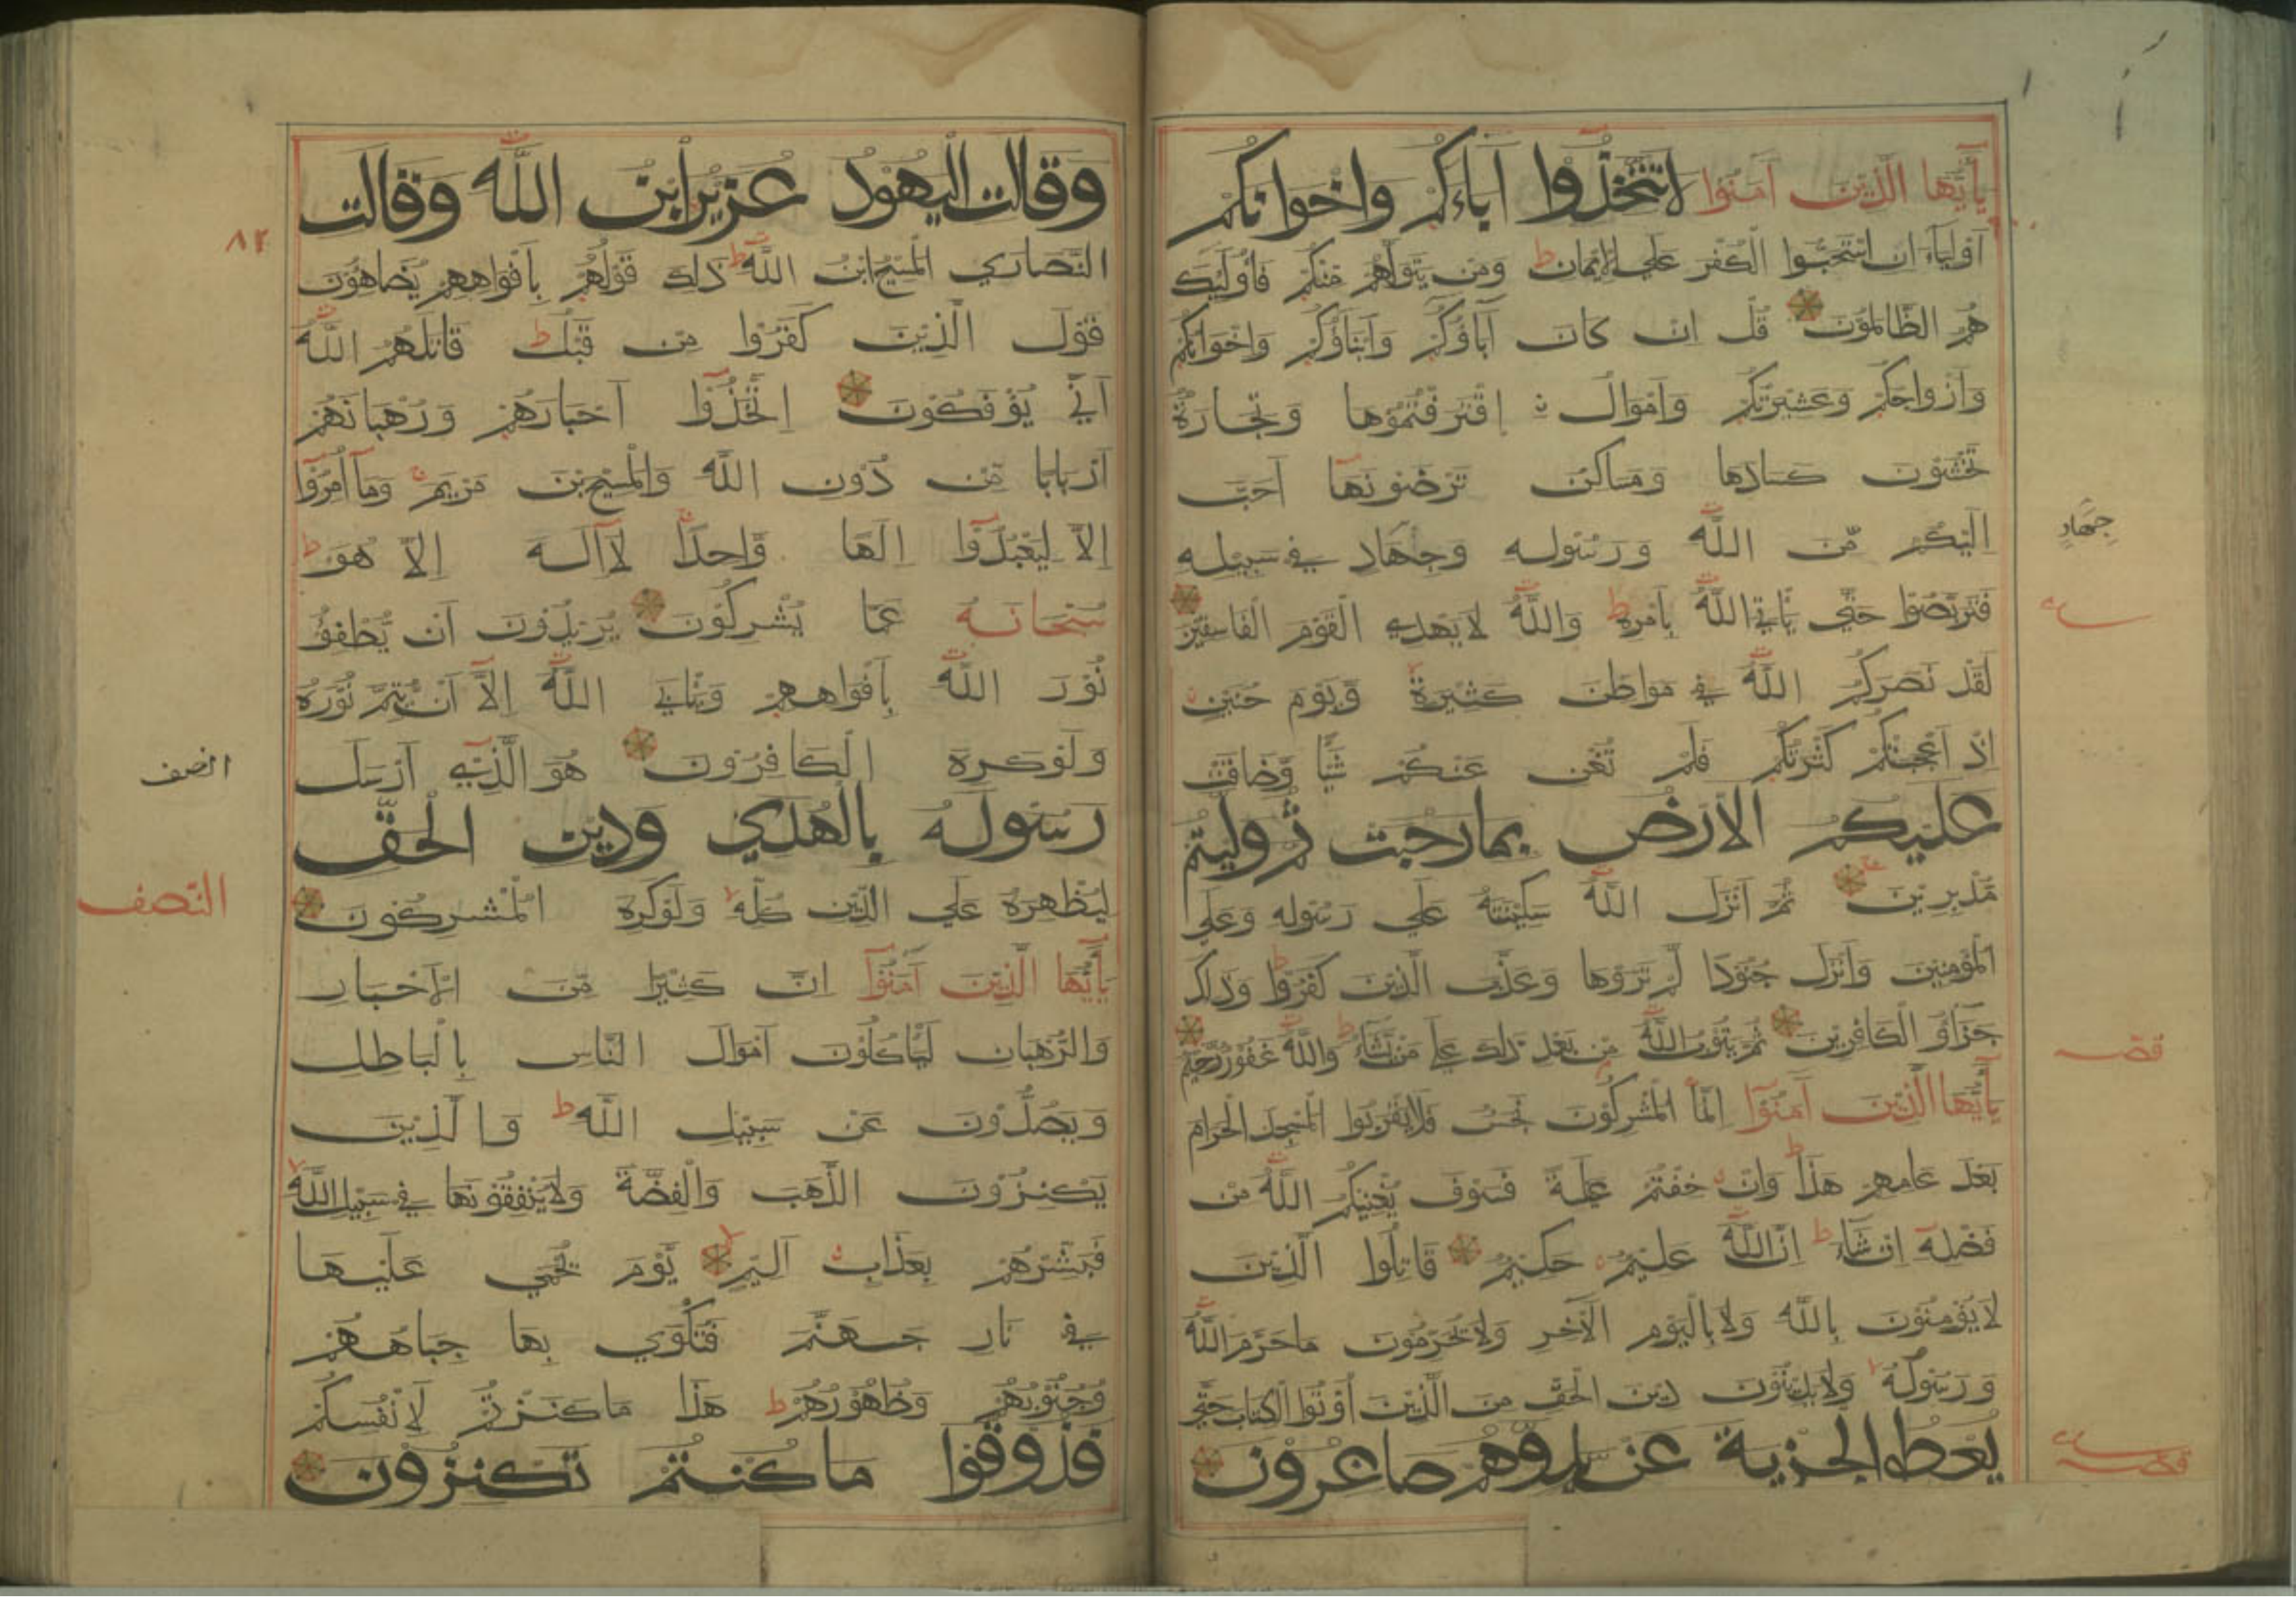 يَآأَيُّهَا الَّذِيْنَ آمَنُوْا لَاتَتَّخِذُوْا آبَاءَكُمْ وَاِخْوَانَكُمْ
اَوْلِيَآءَ اِنِ اسْتَحَبُّوا الْكُفْرَ عَلَي الْاِيْمَانِ ط وَمَنْ يَتَوَلَّهُمْ مِنْكُمْ فَاُولٰئِكَ
هُمُ الظَّالِمُوْنَ قُلْ اِنْ كَانَ آبَاؤُكُمْ وَاَبْنَاؤُكُمْ وَاِخْوَانُكُمْ
وَاَزْوَاجُكُمْ وَعَشِيْرَتُكُمْ وَاَمْوَالُ اِقْتَرَفْتُمُوْهَا وَتِجَارَةٌ
تَخْشَوْنَ كَسَادَهَا وَمَسَاكِنُ تَرْضَوْنَهَآ اَحَبَّ
اِلَيْكُمْ مِّنَ اللّٰهِ وَرَسُوْلِهِ وَجِهَادٍ فِي سَبِيْلِهِ
فَتَرَبَّصُوْا حَتَّي يَأْتِيَ اللّٰهُ بِاَمْرِهِ ط وَاللّٰهُ لَايَهْدِي الْقَوْمَ الْفَاسِقِيْنَ
لَقَدْ نَصَرَكُمُ اللّٰهُ فِي مَوَاطِنَ كَثِيْرَةٍ وَّيَوْمَ حُنَيْنٍ
اِذْ اَعْجَبَتْكُمْ كَثْرَتُكُمْ فَلَمْ تُغْنِ عَنْكُمْ شَيْئًا وَّضَاقَتْ
عَلَيْكُمُ الْاَرْضُ بِمَا رَحُبَتْ ثُمَّ وَلَّيْتُمْ
مُّدْبِرِيْنَ ثُمَّ اَنْزَلَ اللّٰهُ سَكِيْنَتَهُ عَلَي رَسُوْلِهِ وَعَلَي
الْمُؤْمِنِيْنَ وَاَنْزَلَ جُنُوْدًا لَّمْ تَرَوْهَا وَعَذَّبَ الَّذِيْنَ كَفَرُوْا ط وَذٰلِكَ
جَزَاؤُ الْكَافِرِيْنَ ثُمَّ يَتُوْبُ اللّٰهُ مِنْ بَعْدِ ذٰلِكَ عَلَي مَنْ يَّشَآءُ ط وَاللّٰهُ غَفُوْرٌ رَّحِيْمٌ
يَآأَيُّهَا الَّذِيْنَ آمَنُوْآ اِنَّمَا الْمُشْرِكُوْنَ نَجَسٌ فَلَايَقْرَبُوا الْمَسْجِدَ الْحَرَامَ
بَعْدَ عَامِهِمْ هٰذَا ط وَاِنْ خِفْتُمْ عَيْلَةً فَسَوْفَ يُغْنِيْكُمُ اللّٰهُ مِنْ
فَضْلِهِ اِنْ شَآءَ ط اِنَّ اللّٰهَ عَلِيْمٌ حَكِيْمٌ قَاتِلُوا الَّذِيْنَ
لَايُؤْمِنُوْنَ بِاللّٰهِ وَلَابِالْيَوْمِ الْآخِرِ وَلَايُحَرِّمُوْنَ مَاحَرَّمَ اللّٰهُ
وَرَسُوْلُهُ وَلَايَدِيْنُوْنَ دِيْنَ الْحَقِّ مِنَ الَّذِيْنَ اُوْتُوا الْكِتَابَ حَتَّي
يُعْطُوا الْجِزْيَةَ عَنْ يَدٍ وَّهُمْ صَاغِرُوْنَ
جِهَادٍ
قصه
وَقَالَتِ الْيَهُوْدُ عُزَيْرٌ ابْنُ اللّٰهِ وَقَالَتِ
النَّصَارَي الْمَسِيْحُ ابْنُ اللّٰهِ ط ذٰلِكَ قَوْلُهُمْ بِاَفْوَاهِهِمْ يُضَاهِؤُنَ
قَوْلَ الَّذِيْنَ كَفَرُوْا مِنْ قَبْلُ ط قَاتَلَهُمُ اللّٰهُ
اَنّٰي يُؤْفَكُوْنَ اِتَّخَذُوْآ اَحْبَارَهُمْ وَرُهْبَانَهُمْ
اَرْبَابًا مِّنْ دُوْنِ اللّٰهِ وَالْمَسِيْحَ بْنَ مَرْيَمَ وَمَآ اُمِرُوْآ
اِلَّا لِيَعْبُدُوْآ اِلٰهًا وَّاحِدًا لَآاِلٰهَ اِلَّا هُوَ ط
سُبْحَانَهُ عَمَّا يُشْرِكُوْنَ يُرِيْدُوْنَ اَنْ يُّطْفِؤُ
نُوْرَ اللّٰهِ بِاَفْوَاهِهِمْ وَيَأْبَي اللّٰهُ اِلَّآ اَنْ يُّتِمَّ نُوْرَهُ
وَلَوْكَرِهَ الْكَافِرُوْنَ هُوَ الَّذِيْ اَرْسَلَ
رَسُوْلَهُ بِالْهُدَي وَدِيْنِ الْحَقِّ
لِيُظْهِرَهُ عَلَي الدِّيْنِ كُلِّهِ وَلَوْكَرِهَ الْمُشْرِكُوْنَ
يَآأَيُّهَا الَّذِيْنَ آمَنُوْآ اِنَّ كَثِيْرًا مِّنَ الْاَحْبَارِ
وَالرُّهْبَانِ لَيَأْكُلُوْنَ اَمْوَالَ النَّاسِ بِالْبَاطِلِ
وَيَصُدُّوْنَ عَنْ سَبِيْلِ اللّٰهِ ط وَالَّذِيْنَ
يَكْنِزُوْنَ الذَّهَبَ وَالْفِضَّةَ وَلَايُنْفِقُوْنَهَا فِي سَبِيْلِ اللّٰهِ
فَبَشِّرْهُمْ بِعَذَابٍ اَلِيْمٍ يَّوْمَ يُحْمَي عَلَيْهَا
فِي نَارِ جَهَنَّمَ فَتُكْوَي بِهَا جِبَاهُهُمْ
وَجُنُوْبُهُمْ وَظُهُوْرُهُمْ ط هٰذَا مَاكَنَزْتُمْ لِاَنْفُسِكُمْ
فَذُوْقُوْا مَاكُنْتُمْ تَكْنِزُوْنَ
٨٢
النصف
النّصف